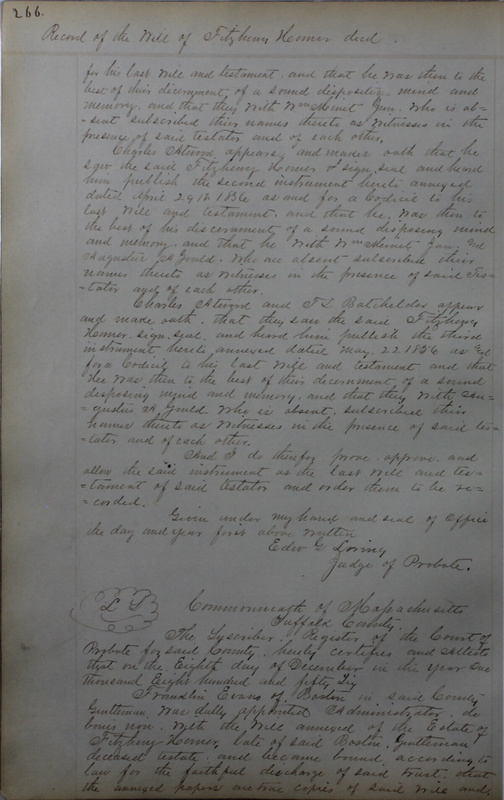 266.
Record of the Will of Fitzhenry Homer decd.
for his last Will and testament. and that he was then to the
best of their decernment, of a sound disposeing mind and
memory. and that they with Wm Minot Jun. who is ab=
=sent subscribed their names thereto as witnesses in the
presence of said testator and of each other.
Charles Atwood appears, and makes oath that he
saw the said Fitzhenry Homer sign, seal and heard
him publish the second instrument hereto annexed
dated April 29th 1836 as and for a Codicil to his
last Will and testament. and that he was then to
the best of his discernment of a sound disposing mind
and memory. and that he with Wm Minot Jun. and
Augustus A Gould. who are absent subscribed their
names thereto as witnesses in the presence of said Tes=
=tator and of each other.
Charles Atwood and T L Batchelder appear
and made oath. that they saw the said Fitzhenry
Homer. sign, seal, and heard him publish the third
instrument hereto annexed dated May 22 1856 as and
for a Codicil to his last Will and testament and that
he was then to the best of their dicernment, of a sound
disposing mind and memory. and that they with Au=
=gustus A Gould. who is absent, subscribed their
names thereto as witnesses in the presence of said tes=
=tator and of each other.
And I do therefor prove. approve. and
allow the said instrument as the last Will and tes=
=tament of said testator and order them to be re=
=corded.
Given under my hand and seal of Office
the day and year first above written
Edw G Loring
Judge of Probate.
L S
Commonwealth of Massachusetts
Suffolk County.
The Subscriber, Register of the Court of
Probate for said County, hereby certifies and attests
that on the Eighth day of December in the year One
thousand Eight hundred and fifty Six
Franklin Evans of Boston in said County
Gentleman. was dully appointed Administrator. de
bonis non. with the Will annexed of the Estate of
Fitzhenry Homer, late of said Boston. Gentleman
deceased testate. and became bound, according to
law for the faithful discharge of said trust, that
the annexed papers are true copies of said Will and